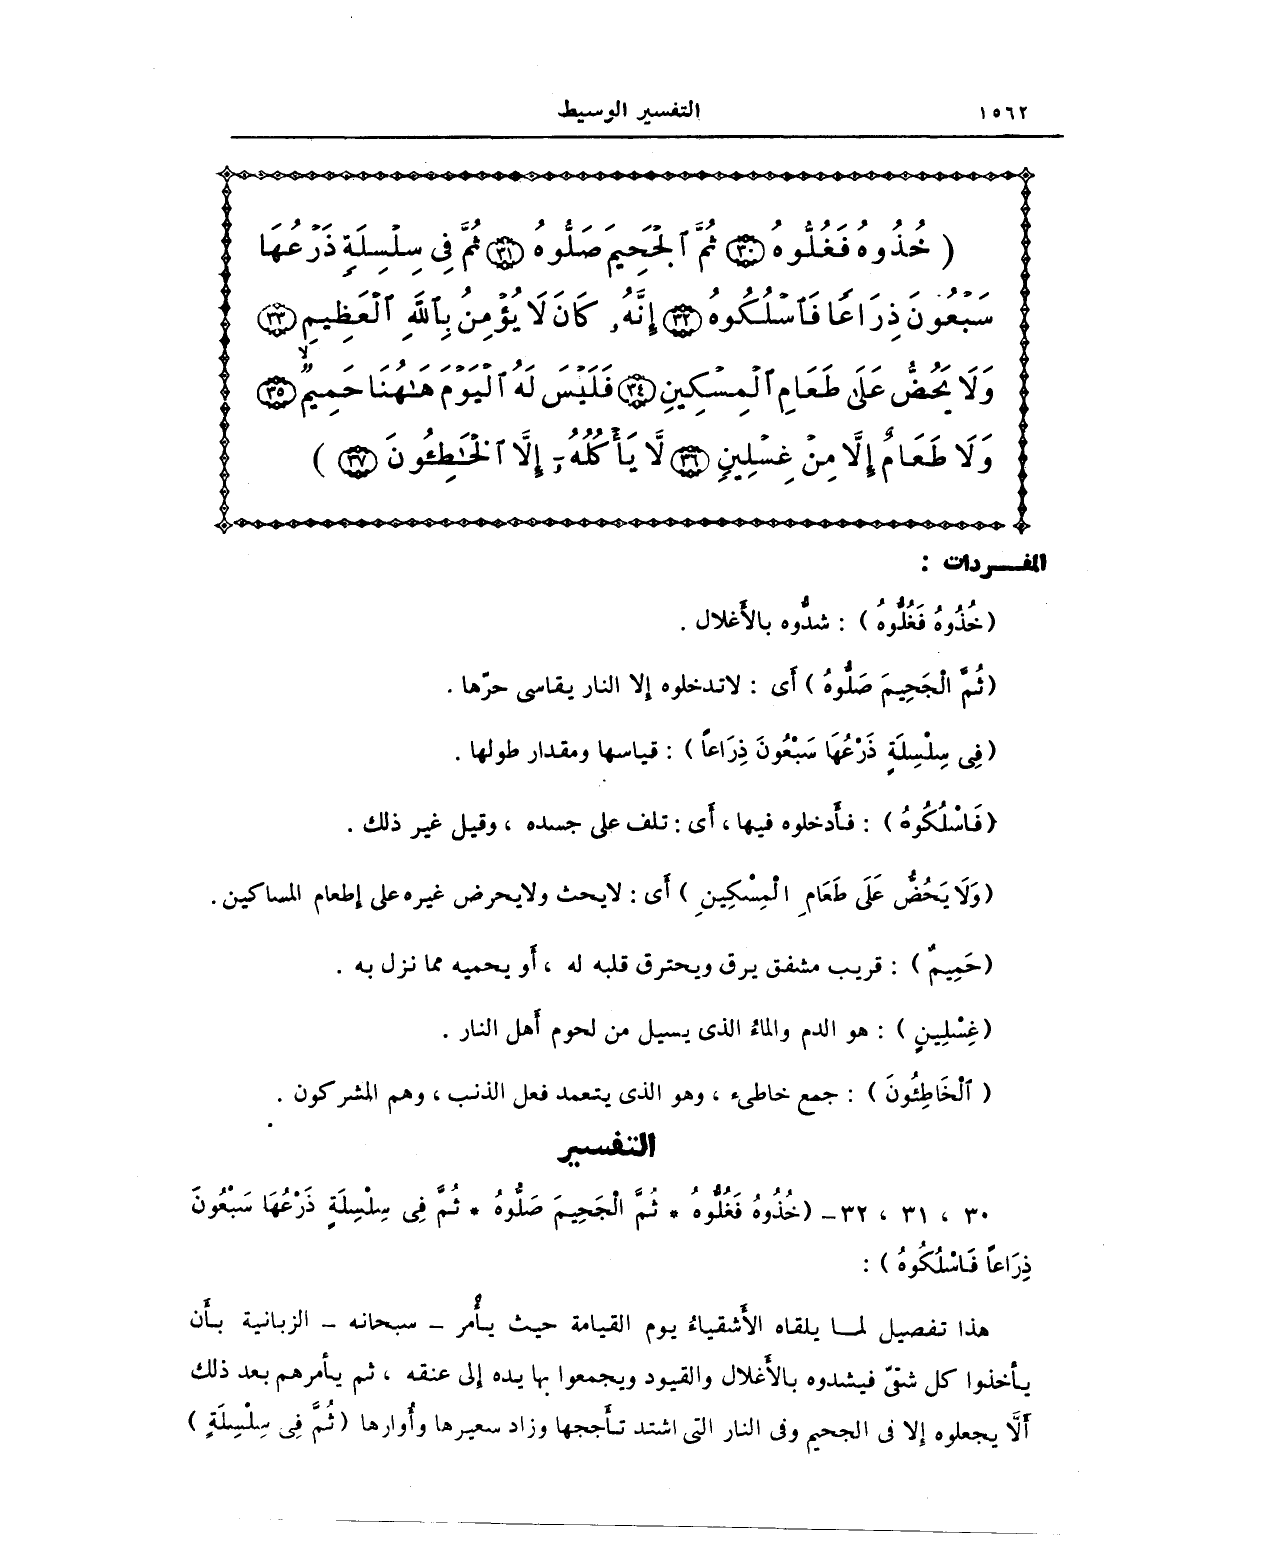 ١٥٦٢
التفسير الوسيط
( خُذُوهُ فَغُلُّوهُ ٣٠ ثُمَّ ٱلْجَحِيمَ صَلُّوهُ ٣١ ثُمَّ فِى سِلْسِلَةٍ ذَرْعُهَا
سَبْعُونَ ذِرَاعًا فَٱسْلُكُوهُ ٣٢ إِنَّهُۥ كَانَ لَا يُؤْمِنُ بِٱللَّهِ ٱلْعَظِيمِ ٣٣
وَلَا يَحُضُّ عَلَىٰ طَعَامِ ٱلْمِسْكِينِ ٣٤ فَلَيْسَ لَهُ ٱلْيَوْمَ هَـٰهُنَا حَمِيمٌ ٣٥
وَلَا طَعَامٌ إِلَّا مِنْ غِسْلِينٍ ٣٦ لَّا يَأْكُلُهُۥٓ إِلَّا ٱلْخَـٰطِئُونَ ٣٧ )
المفـــردات :
(خُذُوهُ فَغُلُّوهُ ) : شدُّوه بالأَغلال .
(ثُمَّ الْجَحِيمَ صَلُّوهُ ) أَى : لاتدخلوه إلا النار يقاسى حرّها .
(فِى سِلْسِلَةٍ ذَرْعُهَا سَبْعُونَ ذِرَاعاً ) : قياسها ومقدار طولها .
(فَاسْلُكُوهُ ) : فأَدخلوه فيها ، أَى : تلف على جسده ، وقيل غير ذلك .
(وَلَا يَحُضُّ عَلَى طَعَامِ الْمِسْكِينِ ) أَى : لايحث ولايحرض غيره على إطعام المساكين .
(حَمِيمٌ ) : قريب مشفق يرق ويحترق قلبه له ، أَو يحميه مما نزل به .
(غِسْلِينٍ ) : هو الدم والماءُ الذى يسيل من لحوم أَهل النار .
( ٱلْخَاطِئُونَ ) : جمع خاطىء ، وهو الذى يتعمد فعل الذنب ، وهم المشركون .
التفسير
٣٠ ، ٣١ ، ٣٢ـ (خُذُوهُ فَغُلُّوهُ * ثُمَّ الْجَحِيمَ صَلُّوهُ * ثُمَّ فِى سِلْسِلَةٍ ذَرْعُهَا سَبْعُونَ
ذِرَاعاً فَاسْلُكُوهُ ) :
هذا تفصيل لمـا يلقاه الأَشقياءُ يوم القيامة حيث يأْمر ـ سبحانه ـ الزبانية بأَن
يأخذوا كل شقىّ فيشدوه بالأَغلال والقيود ويجمعوا بها يده إلى عنقه ، ثم يأمرهم بعد ذلك
أَلَّا يجعلوه إلا فى الجحيم وفى النار التى اشتد تأَججها وزاد سعيرها وأُوارها (ثُمَّ فِى سِلْسِلَةٍ )